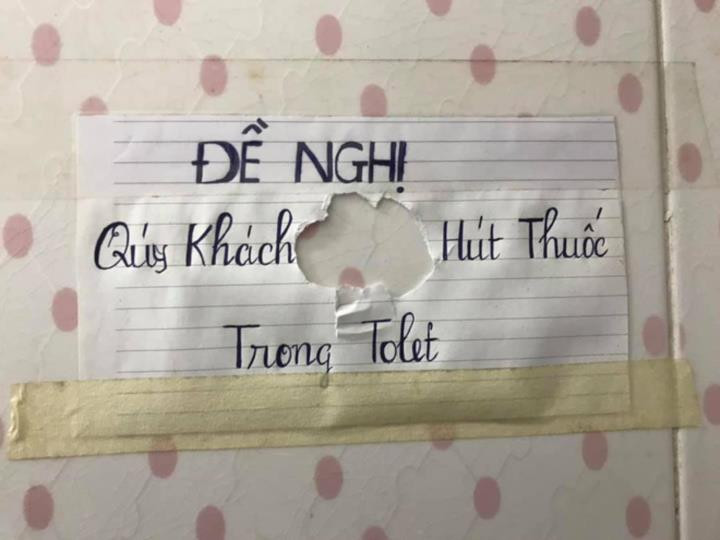 ĐỀ NGHỊ
Qúy Khách Hút Thuốc
Trong Tolet